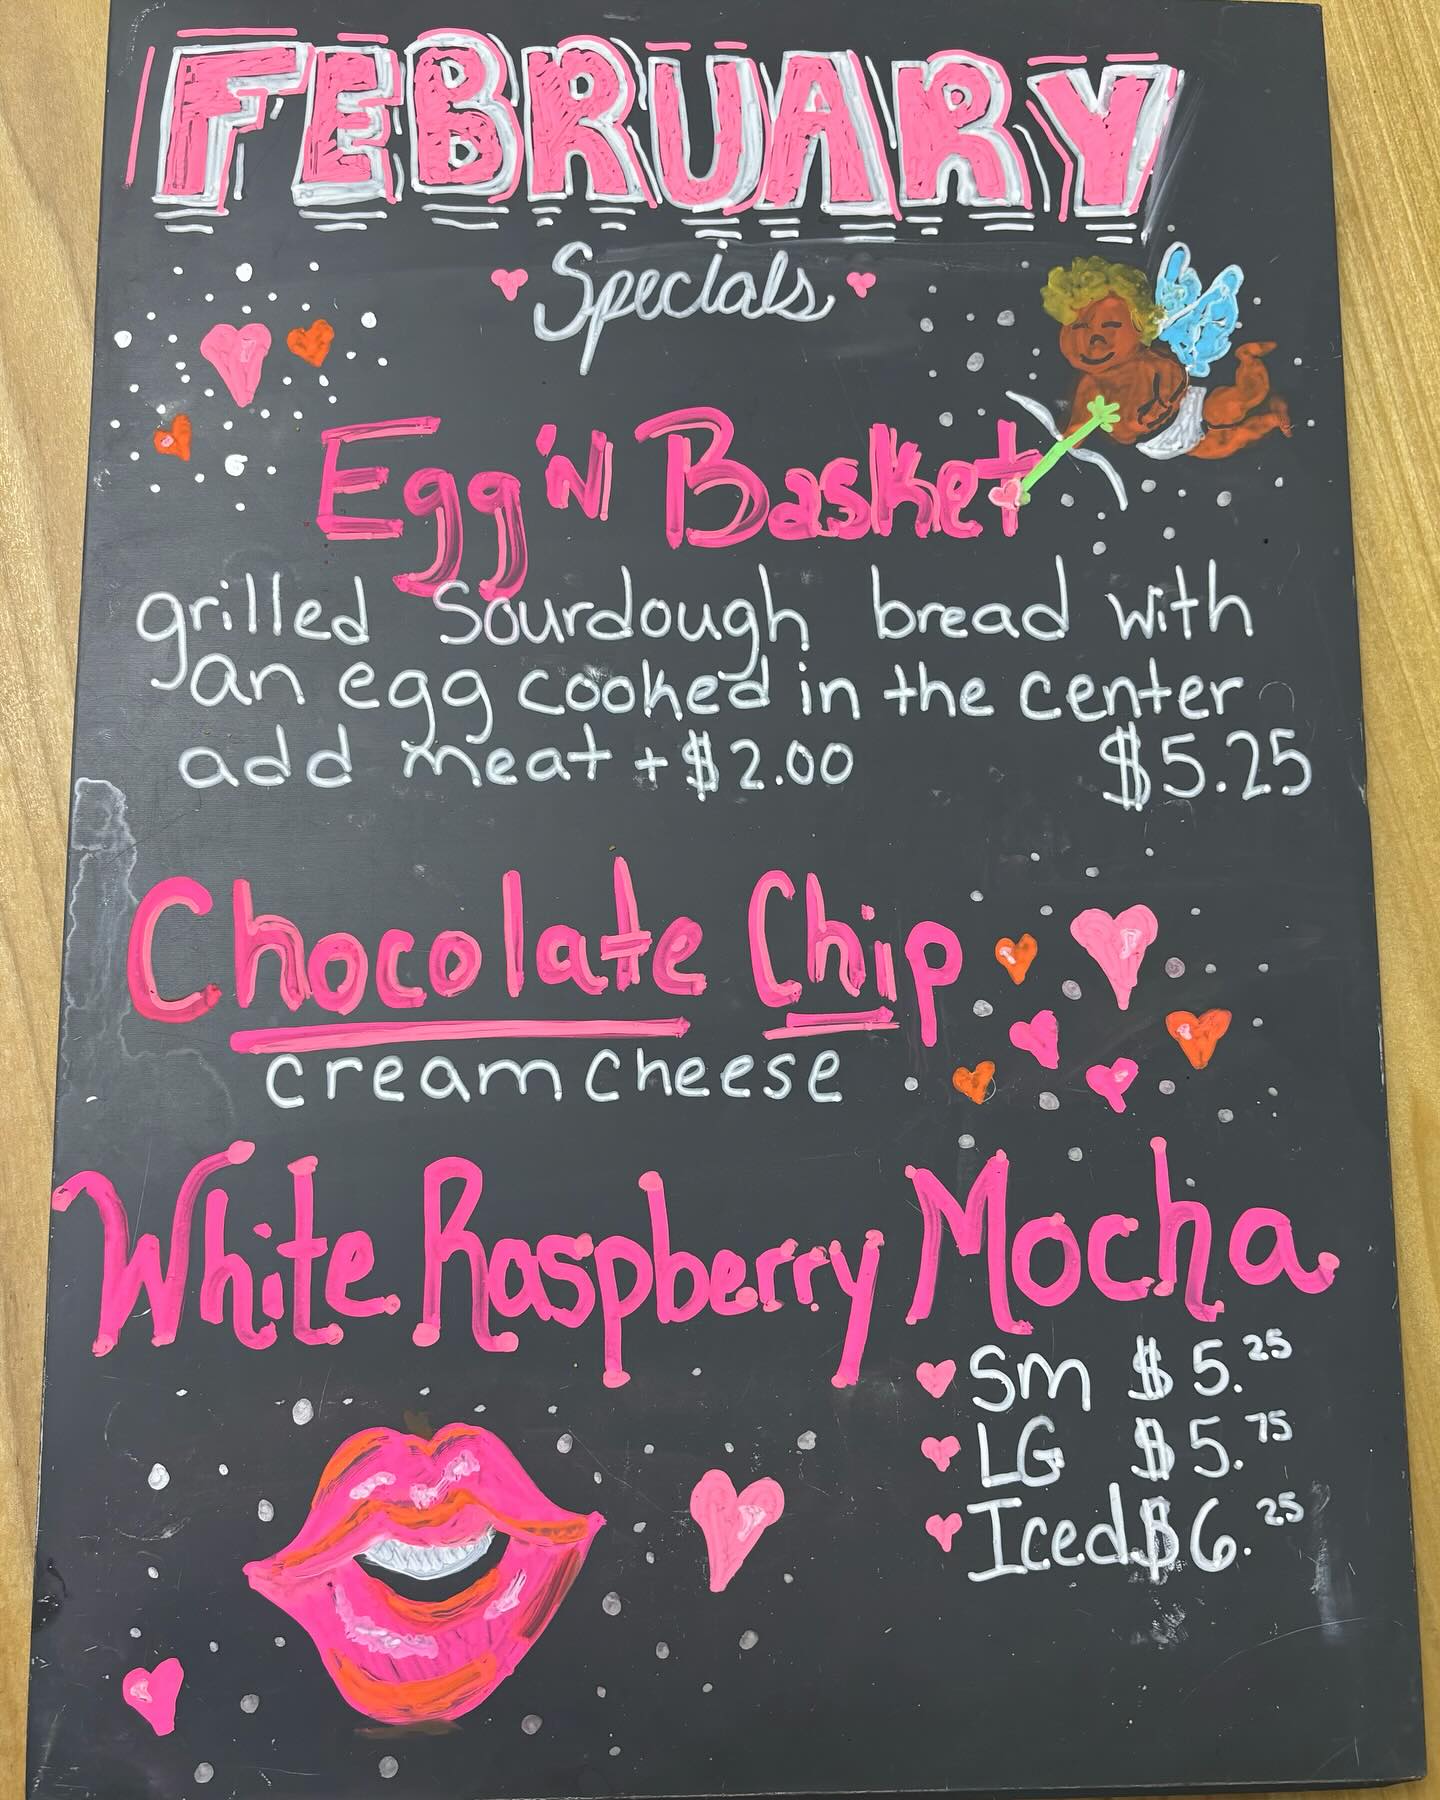 FEBRUARY
Specials
Egg 'N Basket
grilled Sourdough bread with
an egg cooked in the center
add meat +$2.00 $5.25
Chocolate Chip
cream cheese
White Raspberry Mocha
Sm $5.25
LG $5.75
Iced $6.25